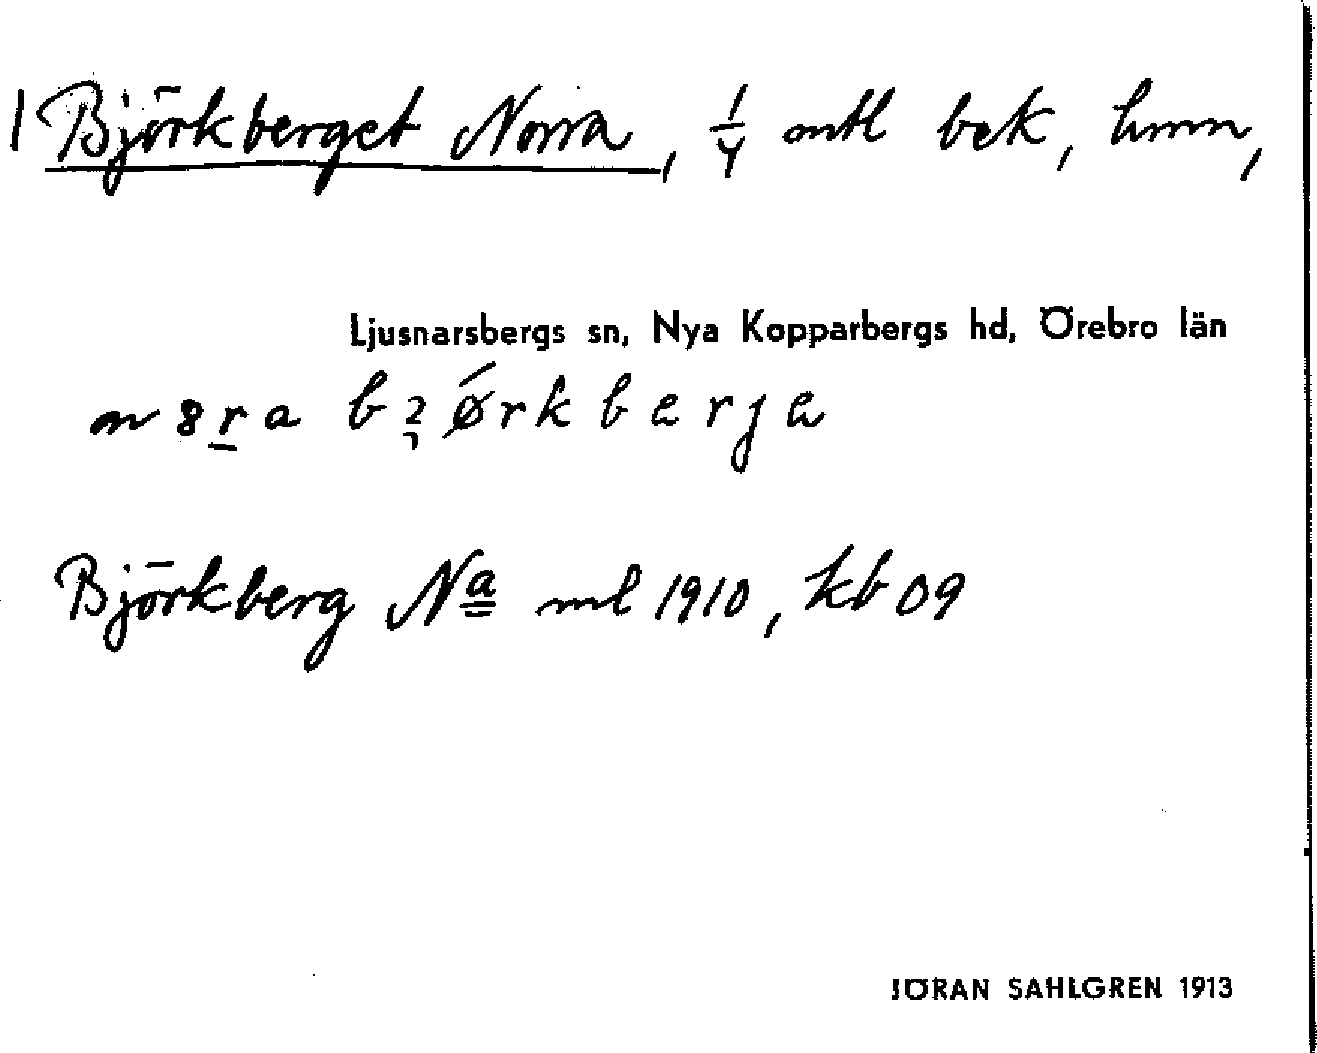 1 Björkberget Norra, 1/4 mtl bek, hmn,
Ljusnarsbergs sn, Nya Kopparbergs hd, Örebro län
Björkberg Na ml 1910, kb 09
JÖRAN SAHLGREN 1913